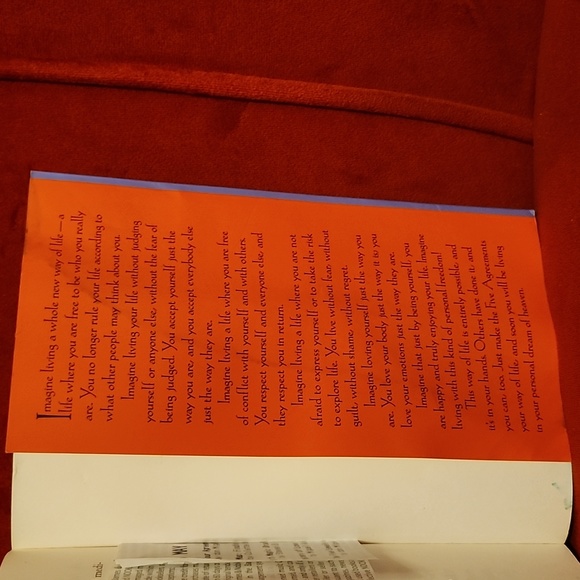 Imagine living a whole new way of life — a
life where you are free to be who you really
are. You no longer rule your life according to
what other people may think about you.
Imagine living your life without judging
yourself or anyone else, without the fear of
being judged. You accept yourself just the
way you are, and you accept everybody else
just the way they are.
Imagine living a life where you are free
of conflict with yourself and with others.
You respect yourself and everyone else, and
they respect you in return.
Imagine living a life where you are not
afraid to express yourself or to take the risk
to explore life. You live without fear, without
guilt, without shame, without regret.
Imagine loving yourself just the way you
are. You love your body just the way it is; you
love your emotions just the way they are.
Imagine that just by being yourself you
are happy and truly enjoying your life. Imagine
living with this kind of personal freedom!
This way of life is entirely possible and
it's in your hands. Others have done it, and
you can, too. Just make the Five Agreements
your way of life, and soon you will be living
in your personal dream of heaven.
med-
MAY